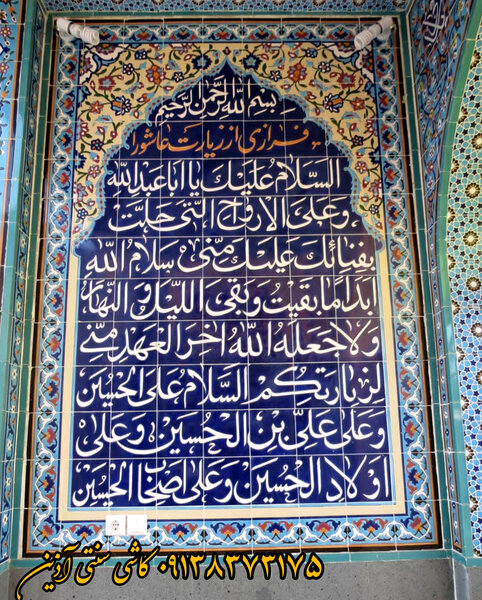 بسم الله الرحمن الرحیم
فرازی از زیارت عاشورا
السلام علیك یا اباعبدالله
وعلی الارواح التی حلت
بفنائك علیك منی سلام الله
ابدا ما بقیت وبقی اللیل والنهار
ولا جعله الله اخر العهد منی
لزیارتکم السلام علی الحسین
وعلی علی بن الحسین وعلی
اولاد الحسین وعلی اصحاب الحسین
۰۹۱۳۸۳۷۳۱۷۵ کاشی سنتی آذین